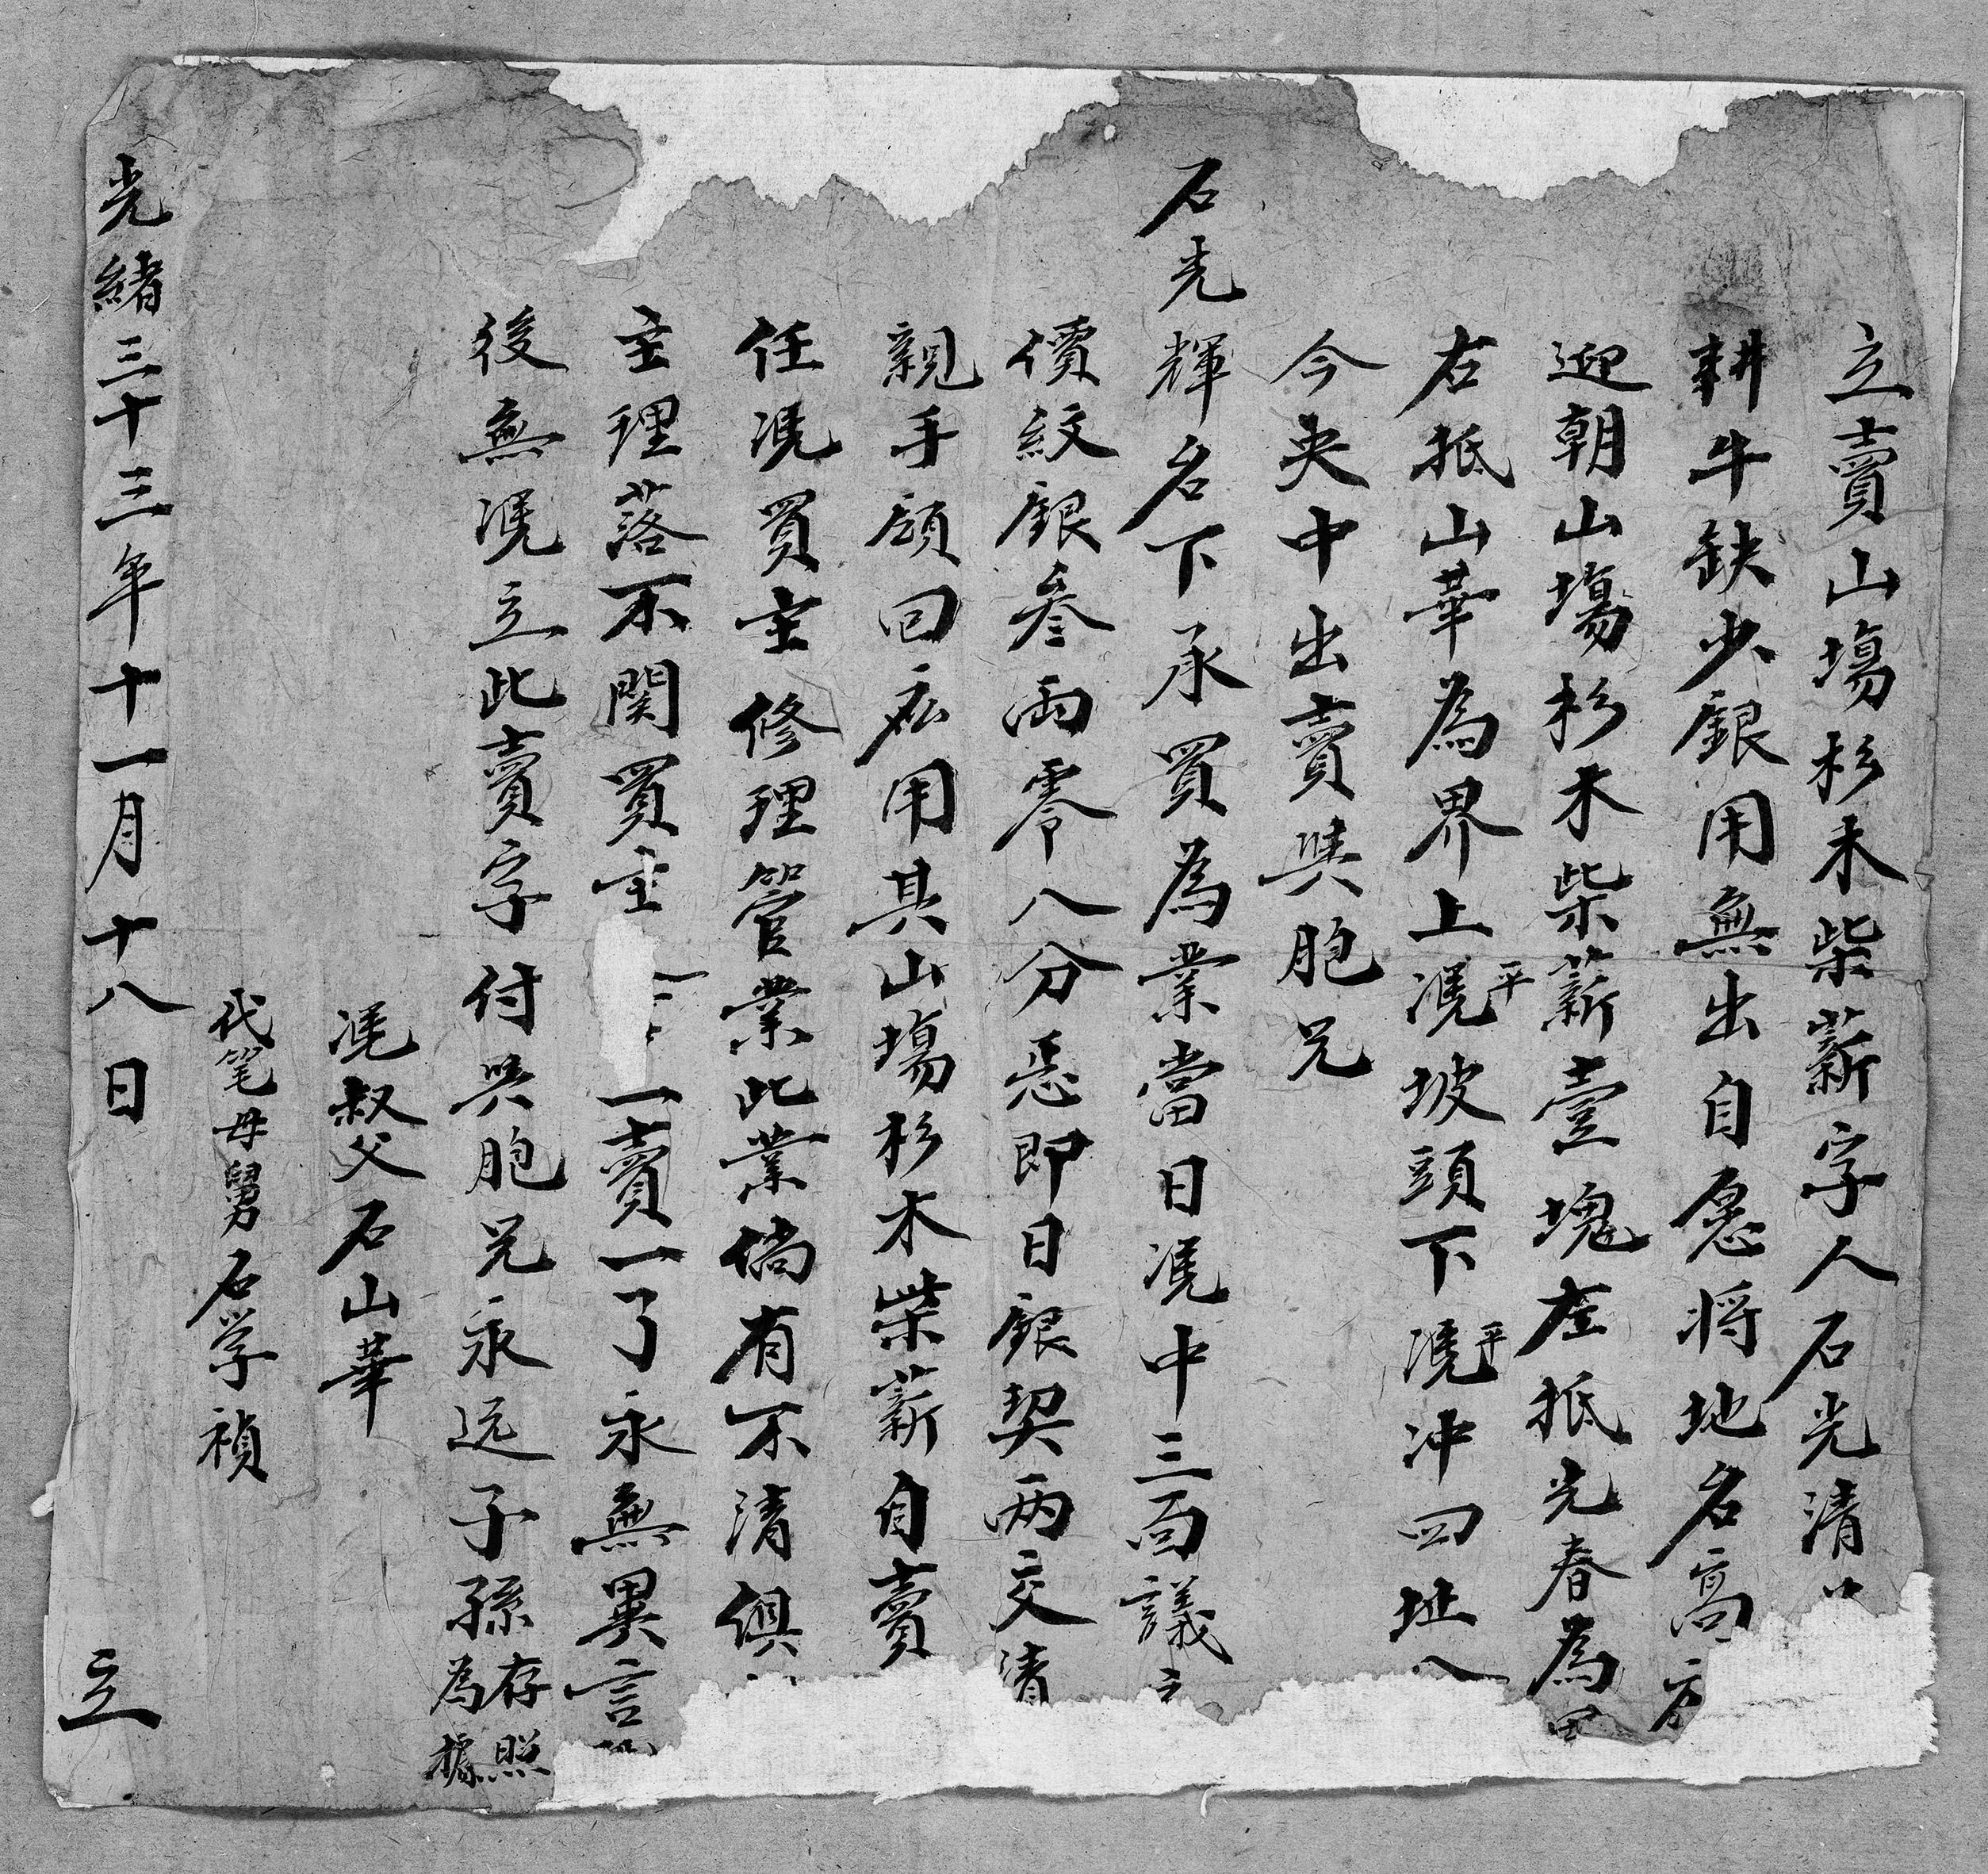 立賣山塲杉木柴薪字人石光清
耕牛缺少銀用無出自愿将地名高
迎朝山塲杉木柴薪壹塊左抵光春為
右抵山華為界上凴平坡頭下凴平冲四址
今央中出賣與胞兄
石光輝名下承買為業當日凴中三面議
價紋銀叄両零八分悉即日銀契两交清
親手領回应用其山塲杉木柴薪自賣
任凴買主修理管業此業倘有不清俱
主理落不関買主一賣一了永無異言
後無凴立此賣字付與胞兄永远子孫存照為據
凴叔父石山華
代笔母舅石学禎
光緒三十三年十一月十八日立